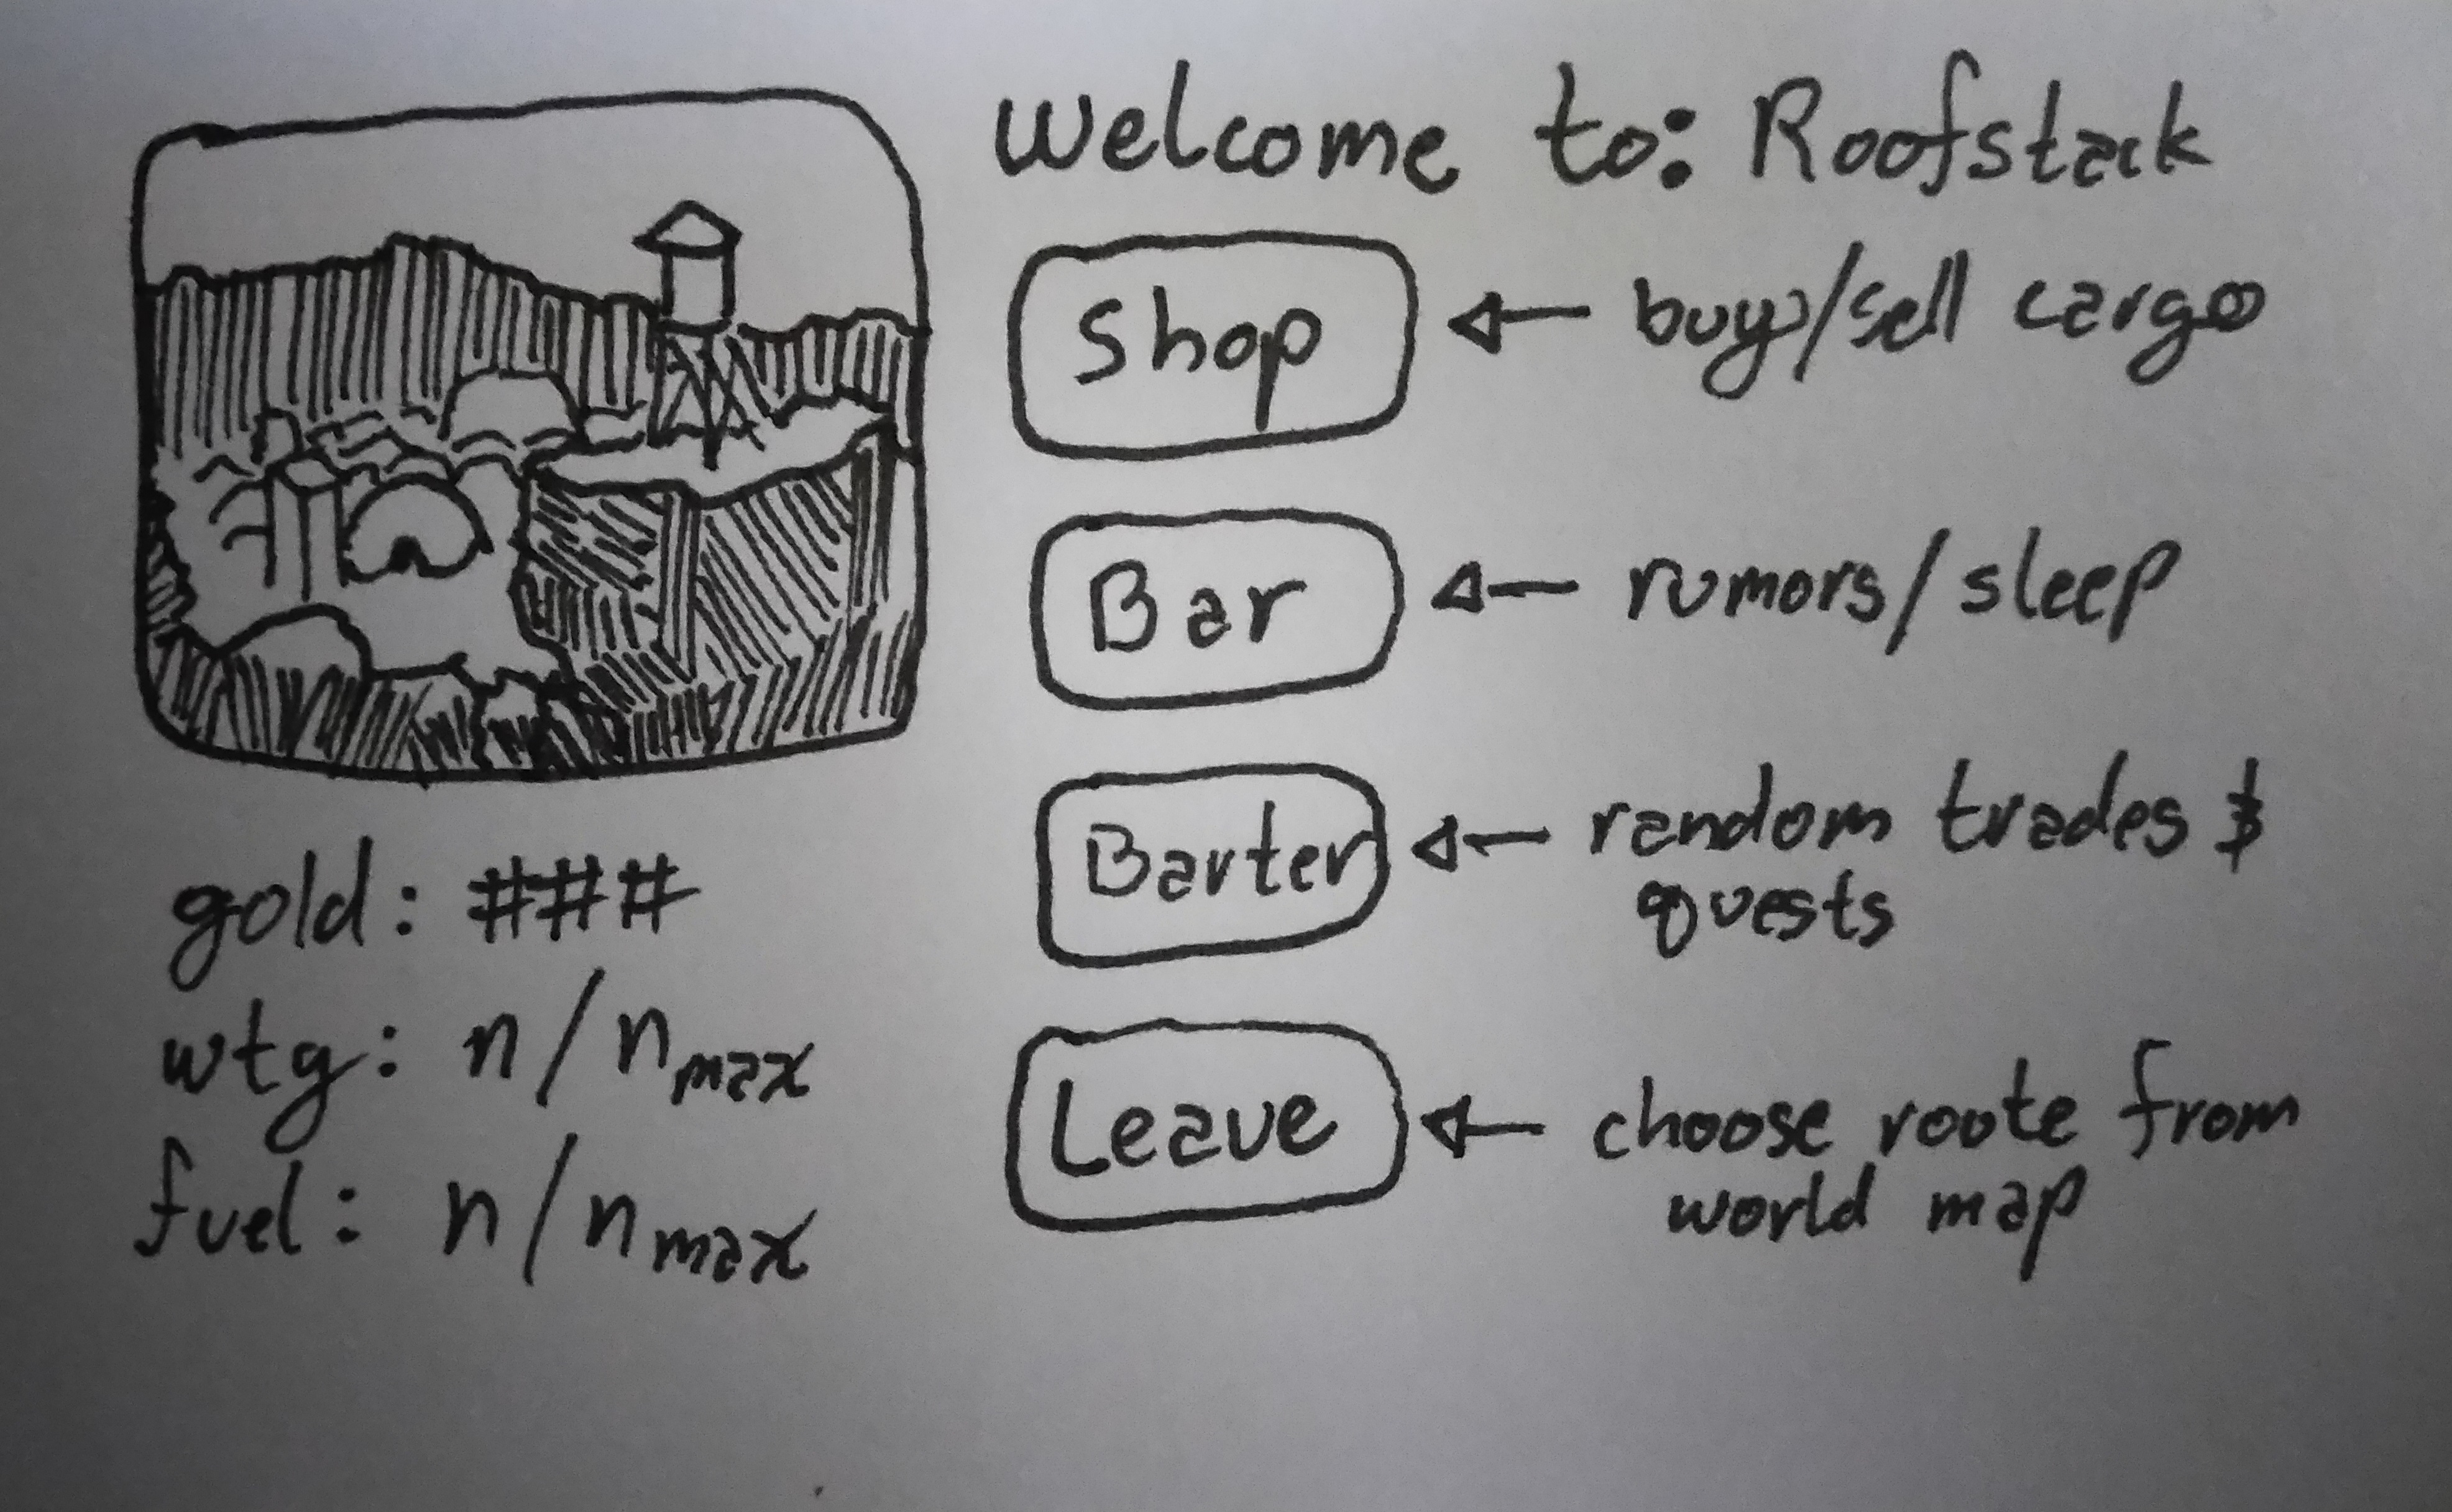 Welcome to: Roofstack
Shop
buy/sell cargo
Bar
rumors/sleep
Barter
random trades &
quests
Leave
choose route from
world map
gold: ###
wtg: n/nmax
fuel: n/nmax